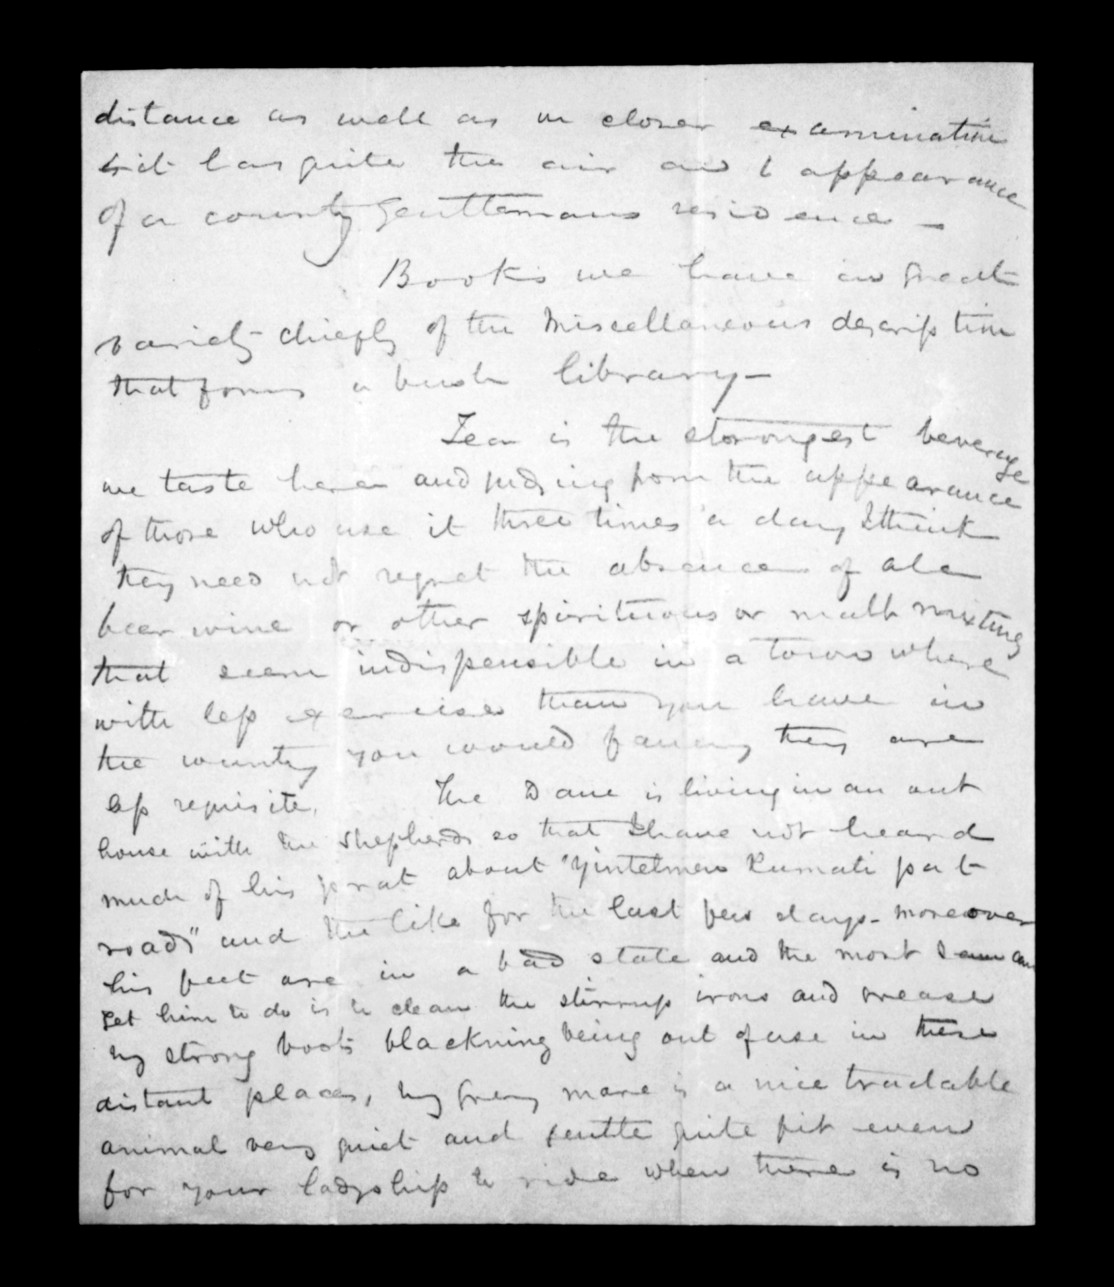 distance as well as on closer examination
it has quite the air and appearance
of a country gentlemans residence —
Books we have in great
variety chiefly of the Miscellaneous description
that forms a bush library —
Tea is the strongest beverage
we taste here and judging from the appearance
of those who use it three times a day I think
they need not regret the absence of ale
beer wine or other spirituous or malt mixting
that seem indispensible in a town where
with less exercise than you have in
the country you would fancy they are
less requisite. The Dane is living in an out
house with the shepherds so that I have not heard
much of his prat about "Yintelmen Rumati pat
road" and the like for the last few days - moreover
his feet are in a bad state and the most I can
get him to do is to clean the stirrup irons and grease
my strong boots blackning being out of use in these
distant places, my grey mare is a nice tractable
animal very quiet and gentle quite fit even
for your ladyship to ride when there is no